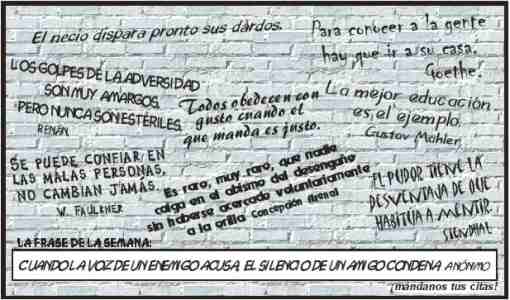 El necio dispara pronto sus dardos.
Para conocer a la gente
hay que ir a su casa.
Goethe.
LOS GOLPES DE LA ADVERSIDAD
SON MUY AMARGOS,
PERO NUNCA SON ESTÉRILES.
RENÁN
Todos obedecen con
gusto cuando el
que manda es justo.
La mejor educación
es el ejemplo.
Gustav Mahler
SE PUEDE CONFIAR EN
LAS MALAS PERSONAS,
NO CAMBIAN JAMÁS.
W. FAULKNER
Es raro, muy raro, que nadie
caiga en el abismo del desengaño
sin haberse acercado voluntariamente
a la orilla Concepción Arenal
EL PUDOR TIENE LA
DESVENTAJA DE QUE
HABITÚA A MENTIR.
STENDHAL
LA FRASE DE LA SEMANA:
CUANDO LA VOZ DE UN ENEMIGO ACUSA, EL SILENCIO DE UN AMIGO CONDENA ANÓNIMO
mándanos tus citas!